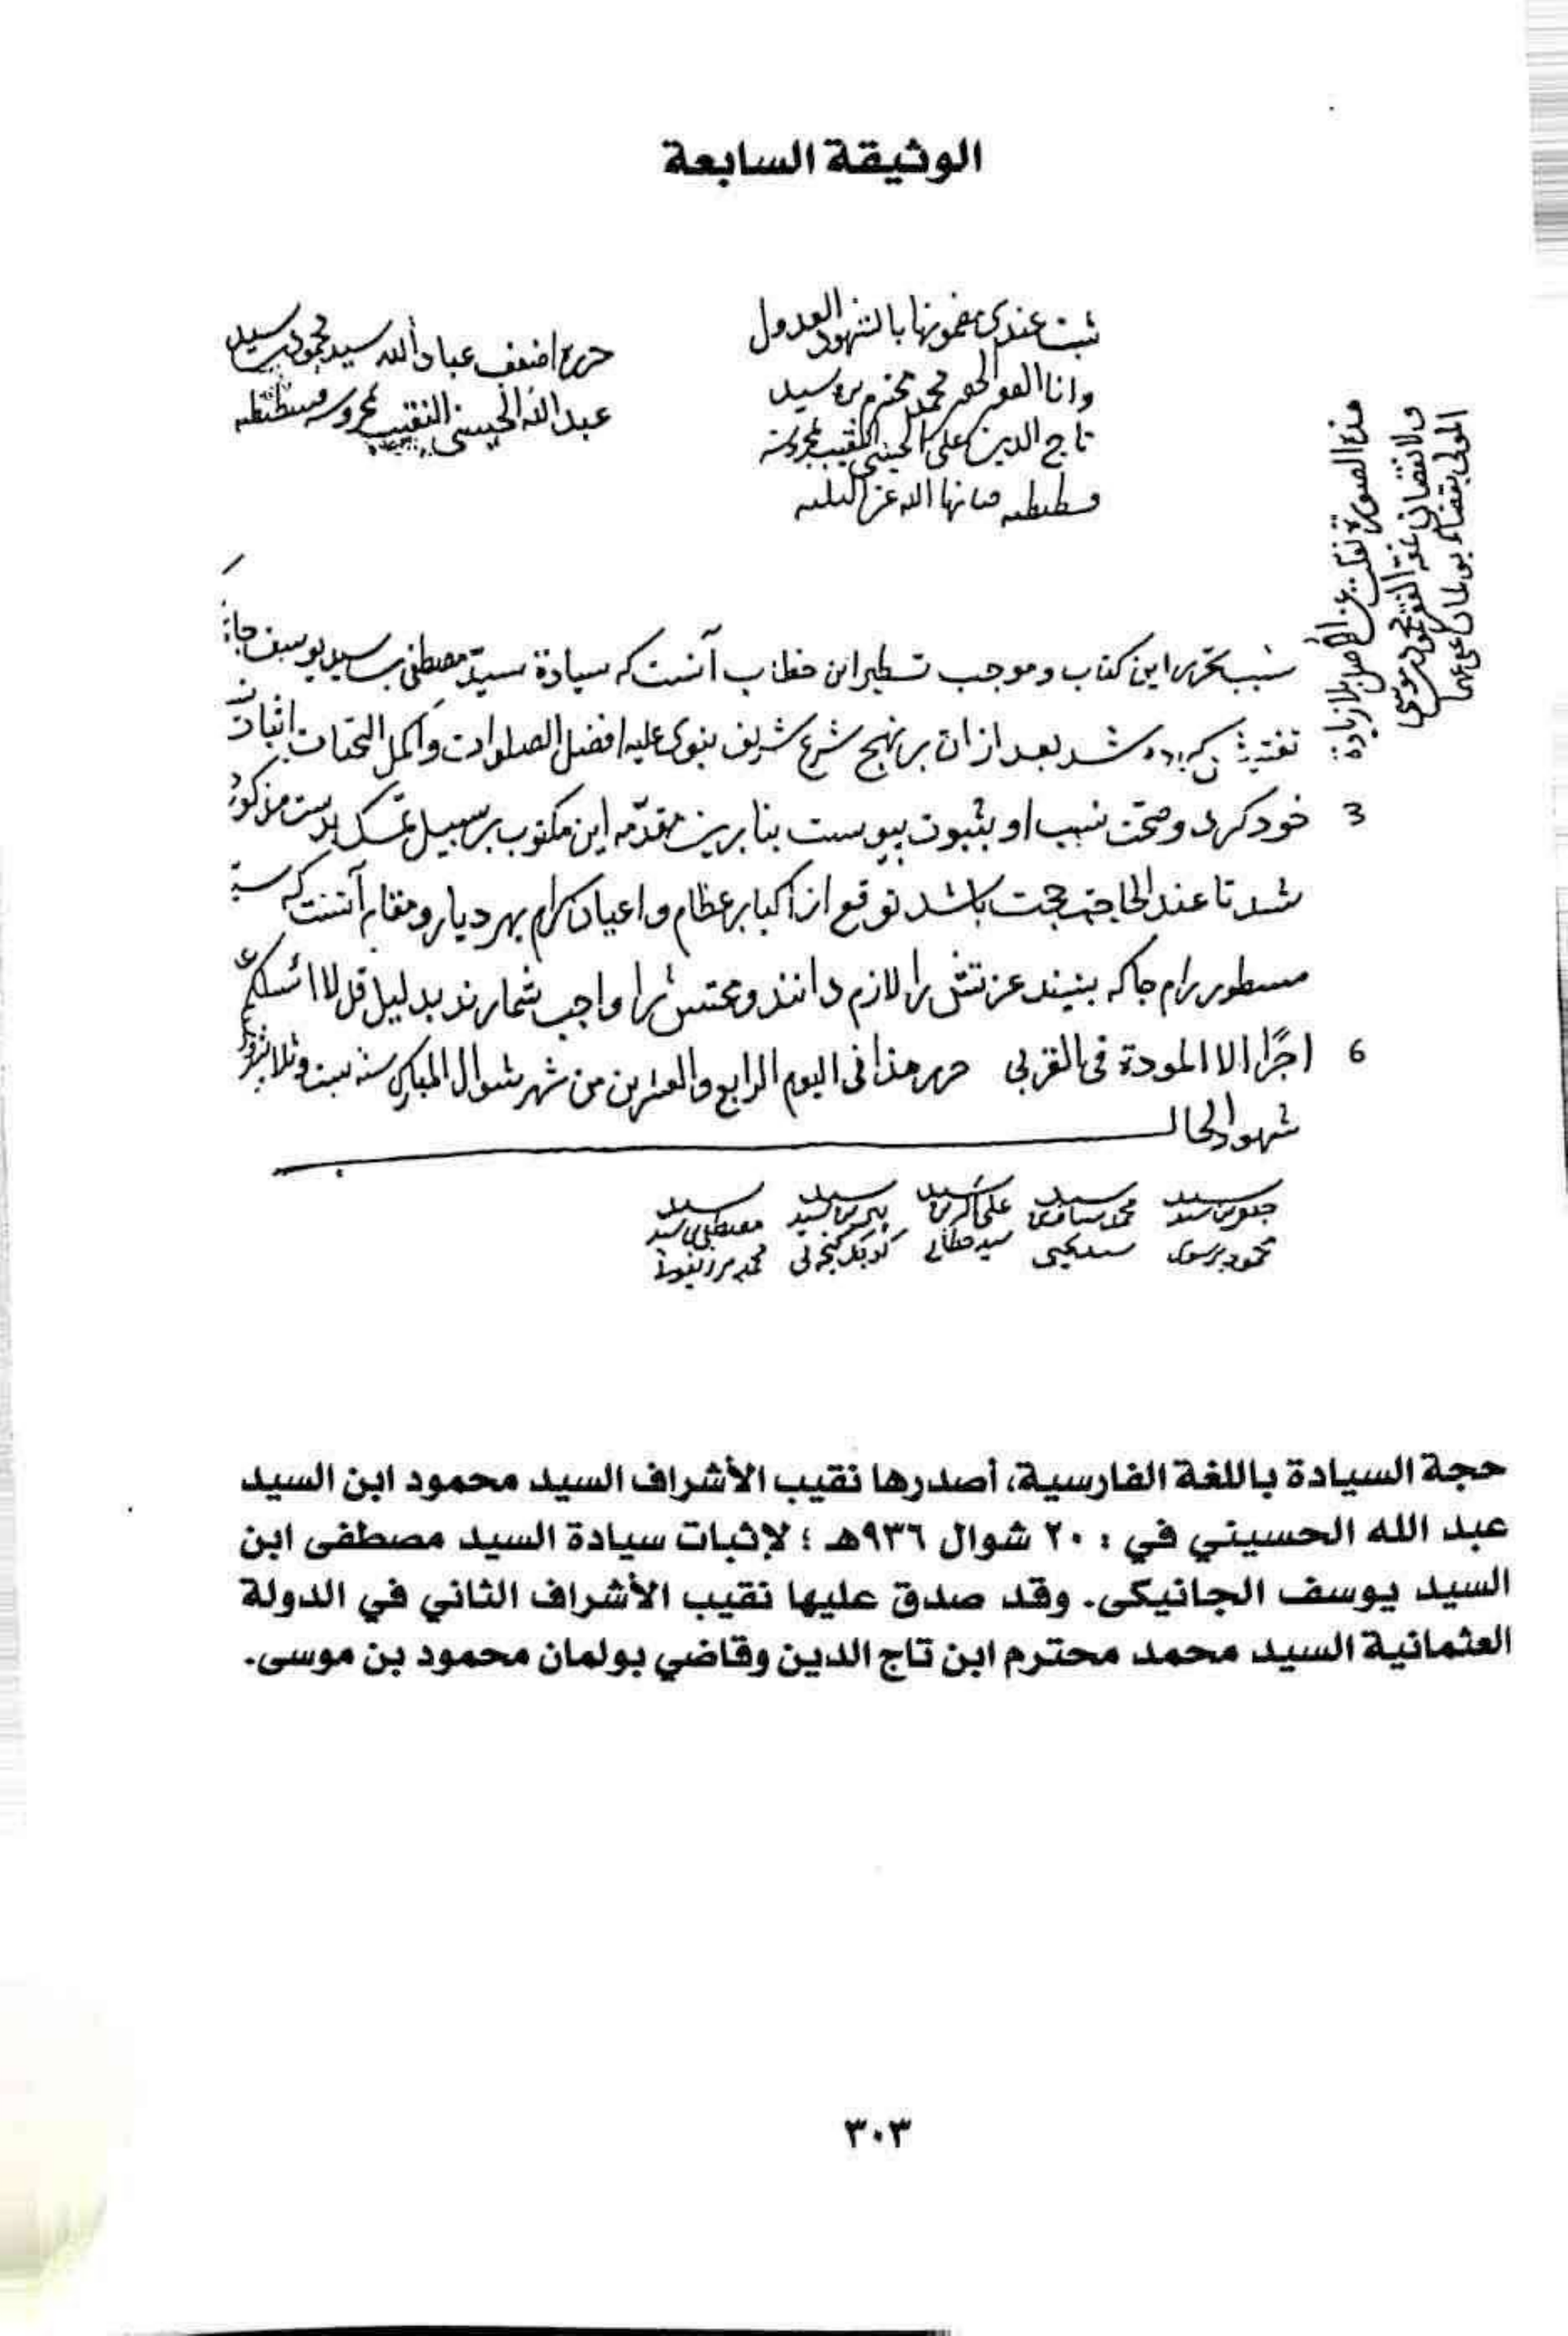 الوثيقة السابعة
ثبت عندى مضمونها بالشهود العدول
وانا الفقير الحقير محمد محترم بن سيد
تاج الدين على الحسينى النقيب بمحروسة
قسطنطنيه صانها الله عن البليه
حرره اضعف عباد الله سيد محمود بن سيد
عبد الله الحسينى النقيب بمحروسه قسطنطنيه
هذه الصورة نقلت عن الاصل بلا زيادة
ولا نقصان نمقه الفقير محمود بن موسى
المولى بقضاء بولمان عفى عنهما
سبب تحرير اين كتاب وموجب تسطير اين خطاب آنست كه سيادة سيد مصطفى بن سيد يوسف
تفتيش كرده شد بعد ازان بر نهج شرع شريف نبوى عليه افضل الصلوات واكمل التحيات اثبات
3 خود كرد وصحت نسب او بثبوت پيوست بنا برين مقدّمه اين مكتوب بر سبيل تمسك بدست مذكور
شد تا عند الحاجة حجت باشد توقع از اكابر عظام واعيان كرام بهر ديار ومقام آنست كه سيد
مسطور را هر جا كه بينند عزتش را لازم دانند ومحبتش را واجب شمارند بدليل قل لا اسئلكم عليه
6 اجرًا الا المودة فى القربى حرر هذا فى اليوم الرابع والعشرين من شهر شوال المبارك سنه ست وثلاثين
شهود الحال
سيد جعفر بن سيد محمود برسوى
سيد محمد سيد يحيى
سيد على سيد
سيد سيد
سيد مصطفى بن سيد محمد
حجة السيادة باللغة الفارسية، أصدرها نقيب الأشراف السيد محمود ابن السيد
عبد الله الحسيني في : ٢٠ شوال ٩٣٦هـ ؛ لإثبات سيادة السيد مصطفى ابن
السيد يوسف الجانيكى. وقد صدق عليها نقيب الأشراف الثاني في الدولة
العثمانية السيد محمد محترم ابن تاج الدين وقاضي بولمان محمود بن موسى.
٣٠٣